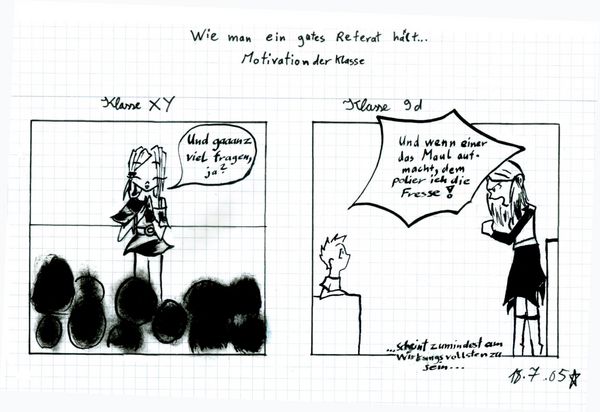 Wie man ein gutes Referat hält...
Motivation der Klasse
Klasse XY
Klasse 9d
Und gaaanz
viel fragen,
ja?
Und wenn einer
das Maul auf-
macht, dem
polier ich die
Fresse!
...scheint zumindest am
Wirkungsvollsten zu
sein...
18.7.05